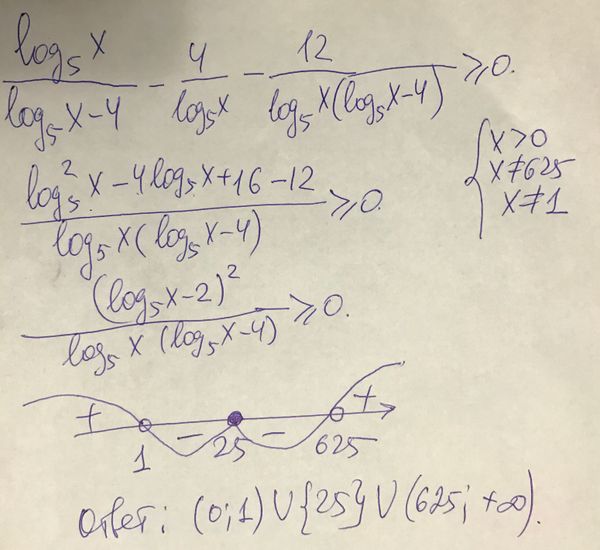 log₅x / (log₅x−4) − 4 / log₅x − 12 / (log₅x(log₅x−4)) ⩾0.
{ x>0
x≠625
x≠1
(log₅²x−4log₅x+16−12) / (log₅x(log₅x−4)) ⩾0.
(log₅x−2)² / (log₅x(log₅x−4)) ⩾0.
+ − − +
1 25 625
Ответ: (0;1)∪{25}∪(625;+∞).